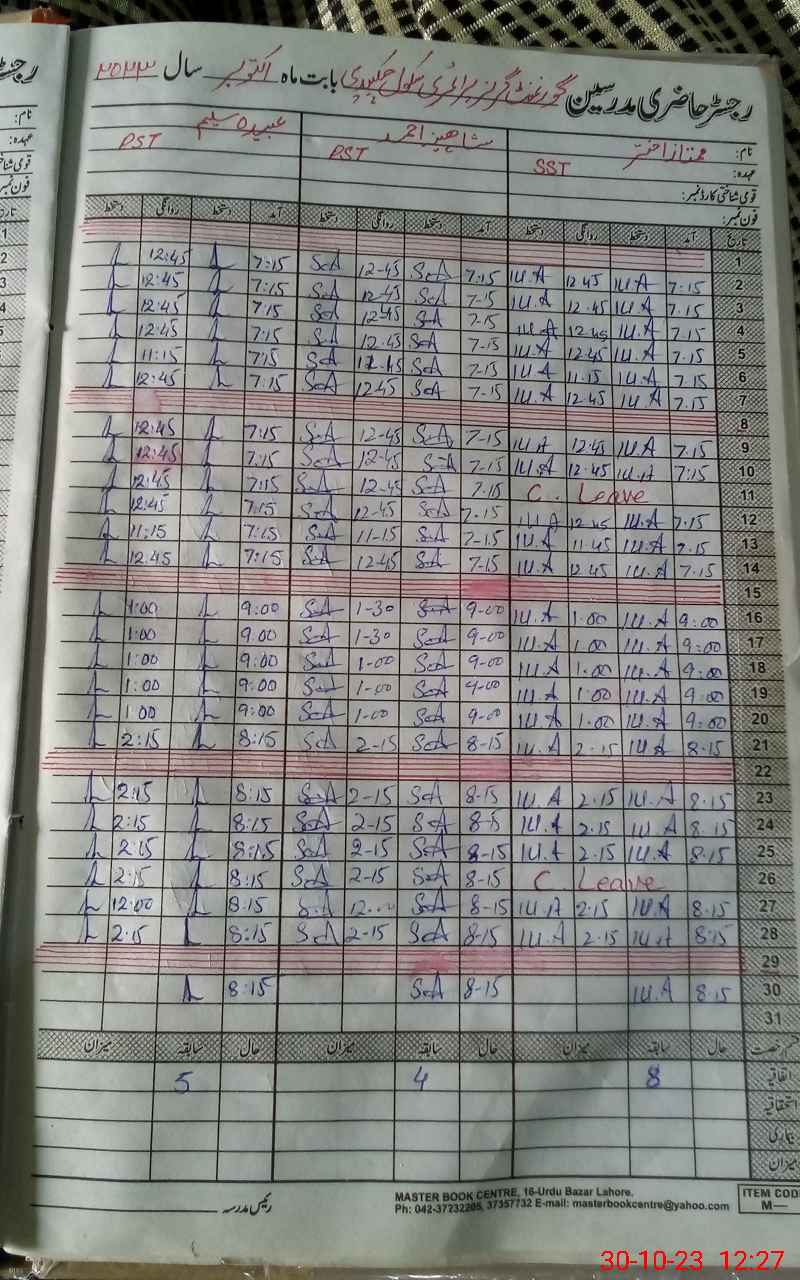 رجسٹر حاضری مدرسین گورنمنٹ گرلز پرائمری سکول بابت ماہ اکتوبر سال ۲۰۲۳
نام: ممتاز اختر شاہینہ احمد عبیدہ سلیم
عہدہ: SST PST PST
قومی شناختی کارڈ نمبر:
فون نمبر:
تاریخ آمد دستخط روانگی دستخط آمد دستخط روانگی دستخط آمد دستخط روانگی دستخط
1
2 7.15 M.A 12.45 M.A 7.15 S.A 12-45 S.A 7:15 12:45
3 7.15 M.A 12.45 M.A 7-15 S.A 12-45 S.A 7:15 12:45
4 7.15 M.A 12.45 M.A 7-15 S.A 12-45 S.A 7:15 12:45
5 7.15 M.A 12.45 M.A 7-15 S.A 12.45 S.A 7:15 12:45
6 7.15 M.A 11.15 M.A 7-15 S.A S.A 7:15 11:15
7 7.15 M.A 12.45 M.A 7-15 S.A 12-45 S.A 7:15 12:45
8
9 7.15 M.A 12.45 M.A 7-15 S.A 12-45 S.A 7:15 12:45
10 7:15 M.A 12.45 M.A 7-15 S.A 12-45 S.A 7:15 12:45
11 C. Leave 7.15 S.A 12-45 S.A 7:15 12:45
12 7.15 M.A 12.45 M.A 7.15 S.A 12-45 S.A 7:15 12:45
13 7.15 M.A 11.45 M.A 7-15 S.A 11-15 S.A 7:15 11:15
14 7.15 M.A 12.45 M.A 7-15 S.A 12-45 S.A 7:15 12:45
15
16 9:00 M.A 1.00 M.A 9-00 S.A 1-30 S.A 9:00 1:00
17 9:00 M.A 1.00 M.A 9-00 S.A 1-30 S.A 9.00 1:00
18 9:00 M.A 1.00 M.A 9-00 S.A 1-00 S.A 9:00 1:00
19 9:00 M.A 1:00 M.A 9-00 S.A 1-00 S.A 9:00 1:00
20 9:00 M.A 1.00 M.A 9-00 S.A 1-00 S.A 9:00 1:00
21 8.15 M.A 2.15 M.A 8-15 S.A 2-15 S.A 8:15 2:15
22
23 8.15 M.A 2.15 M.A 8-15 S.A 2-15 S.A 8:15 2:15
24 8.15 M.A 2.15 M.A 8-15 S.A 2-15 S.A 8:15 2:15
25 8.15 M.A 2.15 M.A 8-15 S.A 2-15 S.A 8:15 2:15
26 C. Leave 8-15 S.A 2-15 S.A 8:15 2:15
27 8.15 M.A 2.15 M.A 8-15 S.A S.A 8:15 12:00
28 8:15 M.A 2.15 M.A 8-15 S.A 2-15 S.A 8:15 2:15
29
30 8.15 M.A 8-15 S.A 8:15
31
قسم رخصت حال سابقہ میزان حال سابقہ میزان حال سابقہ میزان
اتفاقیہ 8 4 5
استحقاقیہ
بیماری
میزان
رئیس مدرسہ
MASTER BOOK CENTRE, 16-Urdu Bazar Lahore.
Ph: 042-37232205, 37357732 E-mail: masterbookcentre@yahoo.com
ITEM COD
M—
30-10-23 12:27